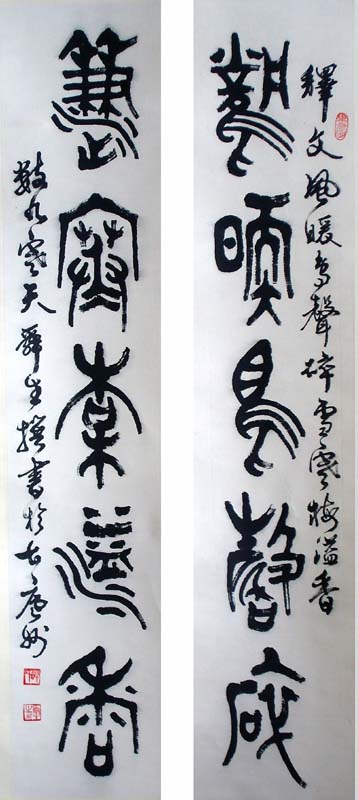 釋文風暖鳥聲碎雪寒梅溢香
風暖鳥聲碎
雪寒梅溢香
數九寒天舜生撰書於古唐州